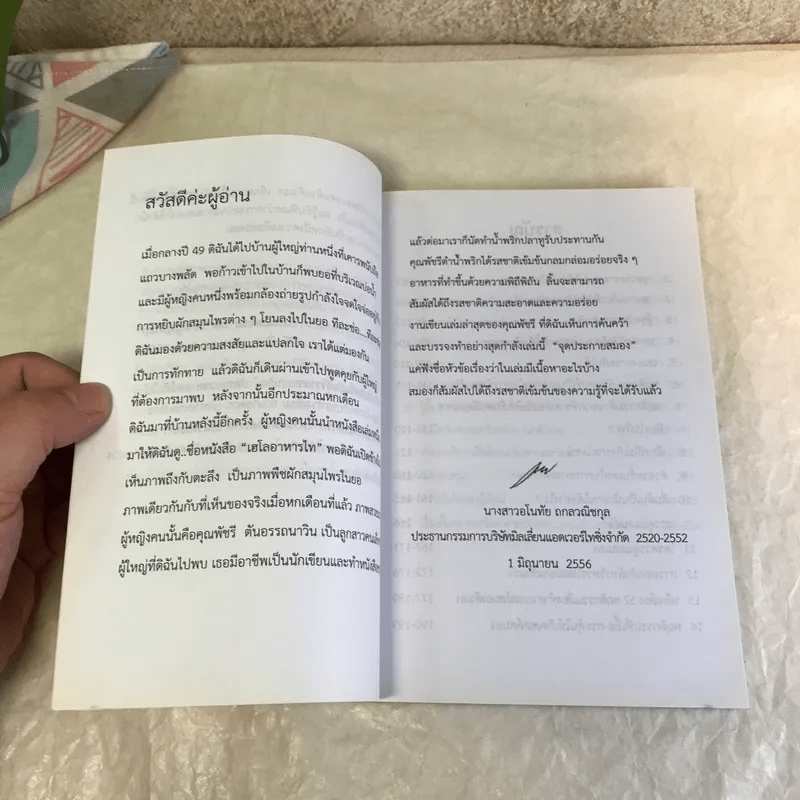 สวัสดีค่ะผู้อ่าน
เมื่อกลางปี 49 ดิฉันได้ไปบ้านผู้ใหญ่ท่านหนึ่งที่เคารพนับถือ
แถวบางพลัด พอก้าวเข้าไปในบ้านก็พบยอที่บริเวณบ่อน้ำ
และมีผู้หญิงคนหนึ่งพร้อมกล้องถ่ายรูปกำลังใจจดใจจ่ออยู่กับ
การหยิบผักสมุนไพรต่าง ๆ โยนลงไปในยอ ทีละช่อ...ทีละช่อ
ดิฉันมองด้วยความสงสัยและแปลกใจ เราได้แต่มองกัน
เป็นการทักทาย แล้วดิฉันก็เดินผ่านเข้าไปพูดคุยกับผู้ใหญ่
ที่ต้องการมาพบ หลังจากนั้นอีกประมาณหกเดือน
ดิฉันมาที่บ้านหลังนี้อีกครั้ง ผู้หญิงคนนั้นนำหนังสือเล่มหนึ่ง
มาให้ดิฉันดู..ชื่อหนังสือ “เฮโลอาหารไท” พอดิฉันเปิดเข้าไป
เห็นภาพถึงกับตะลึง เป็นภาพพืชผักสมุนไพรในยอ
ภาพเดียวกันกับที่เห็นของจริงเมื่อหกเดือนที่แล้ว
ผู้หญิงคนนั้นคือคุณพัชรี ตันอรรถนาวิน เป็นลูกสาวคน
ผู้ใหญ่ที่ดิฉันไปพบ เธอมีอาชีพเป็นนักเขียนและทำหนังสือ
แล้วต่อมาเราก็นัดทำน้ำพริกปลาทูรับประทานกัน
คุณพัชรีตำน้ำพริกได้รสชาติเข้มข้นกลมกล่อมอร่อยจริง ๆ
อาหารที่ทำขึ้นด้วยความพิถีพิถัน ลิ้นจะสามารถ
สัมผัสได้ถึงรสชาติความสะอาดและความอร่อย
งานเขียนเล่มล่าสุดของคุณพัชรี ที่ดิฉันเห็นการค้นคว้า
และบรรจงทำอย่างสุดกำลังเล่มนี้ “จุดประกายสมอง”
แค่ฟังชื่อหัวข้อเรื่องว่าในเล่มมีเนื้อหาอะไรบ้าง
สมองก็สัมผัสไปได้ถึงรสชาติเข้มข้นของความรู้ที่จะได้รับแล้ว
นางสาวอโนทัย ถกลวณิชกุล
ประธานกรรมการบริษัทมิลเลี่ยนแอดเวอร์ไทซิ่งจำกัด 2520-2552
1 มิถุนายน 2556